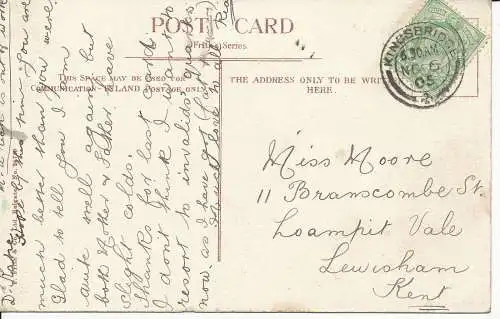 POST CARD
Friths Series.
THIS SPACE MAY BE USED FOR
COMMUNICATION INLAND POSTAGE ONLY
THE ADDRESS ONLY TO BE WRITTEN
HERE.
KINGSBRIDGE
05
Miss Moore
11 Branscombe St.
Loampit Vale
Lewisham
Kent
you are
much better than you were.
Glad to tell you I am
quite well again but
both Mother & Father have
slight colds.
Thanks for last card
I don't think I must
resort to invalids'
now. as I have got
love to all